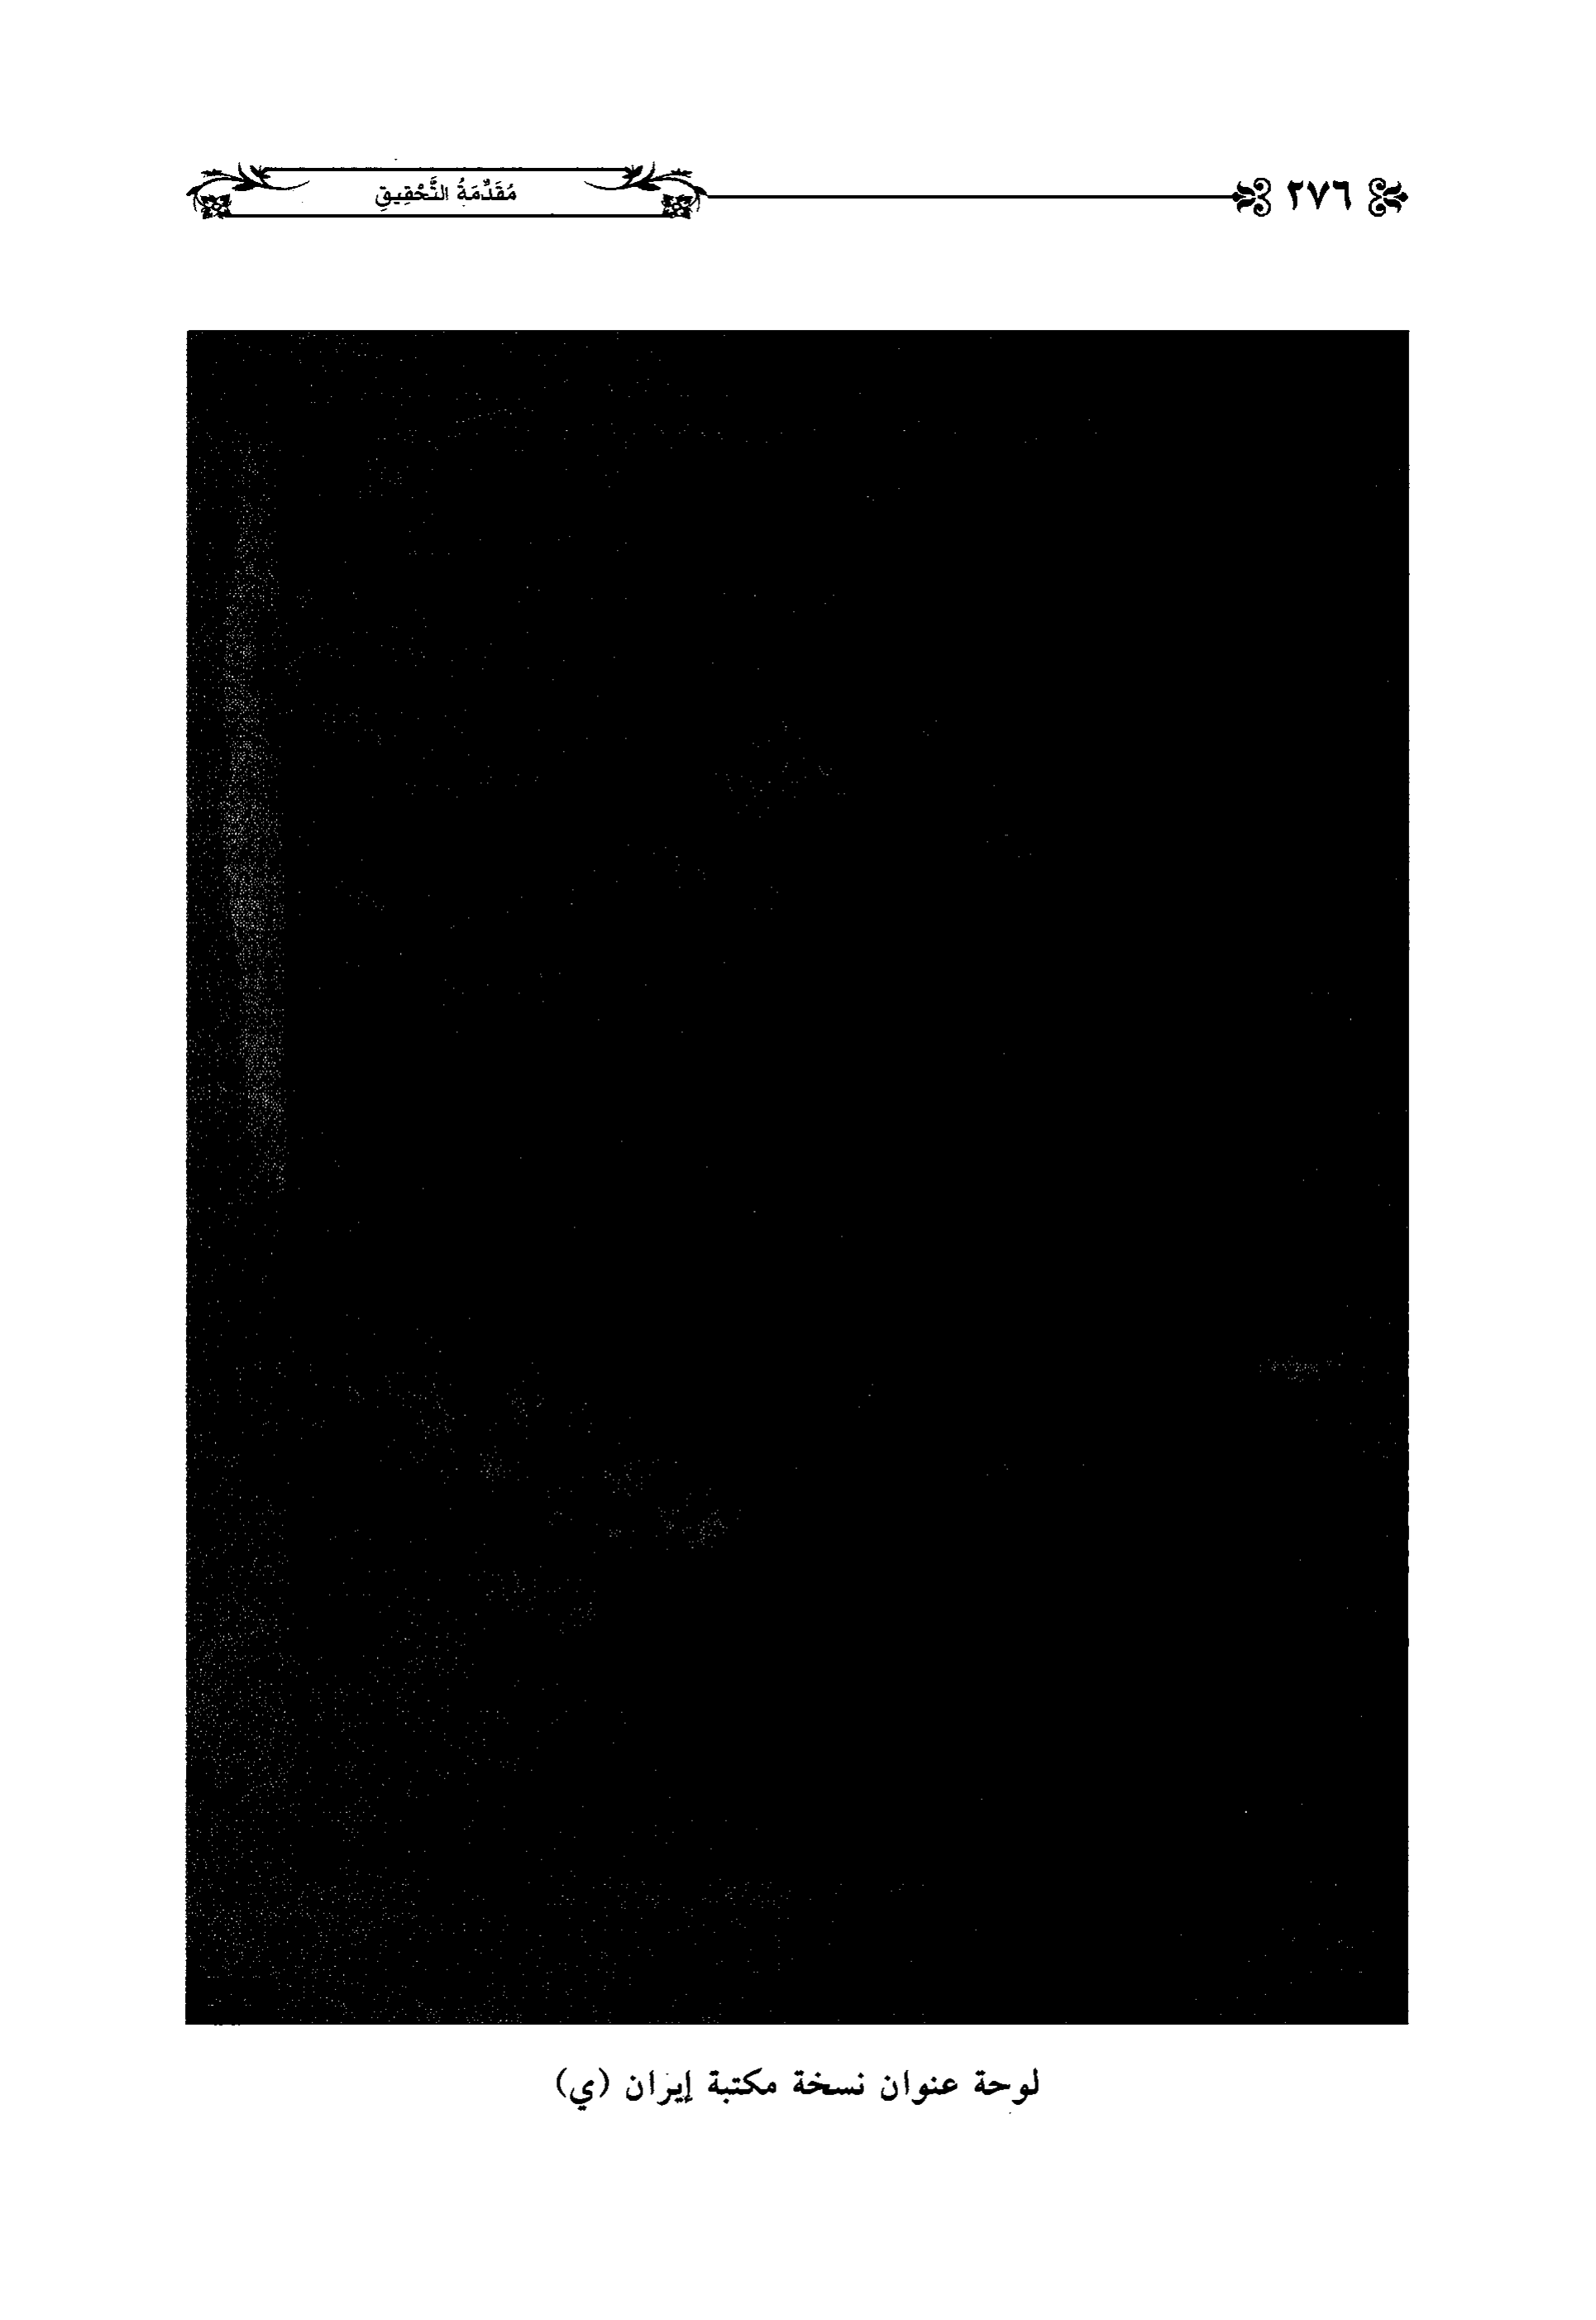 ٢٧٦
مُقَدِّمَةُ التَّحْقِيقِ
لوحة عنوان نسخة مكتبة إيران (ي)